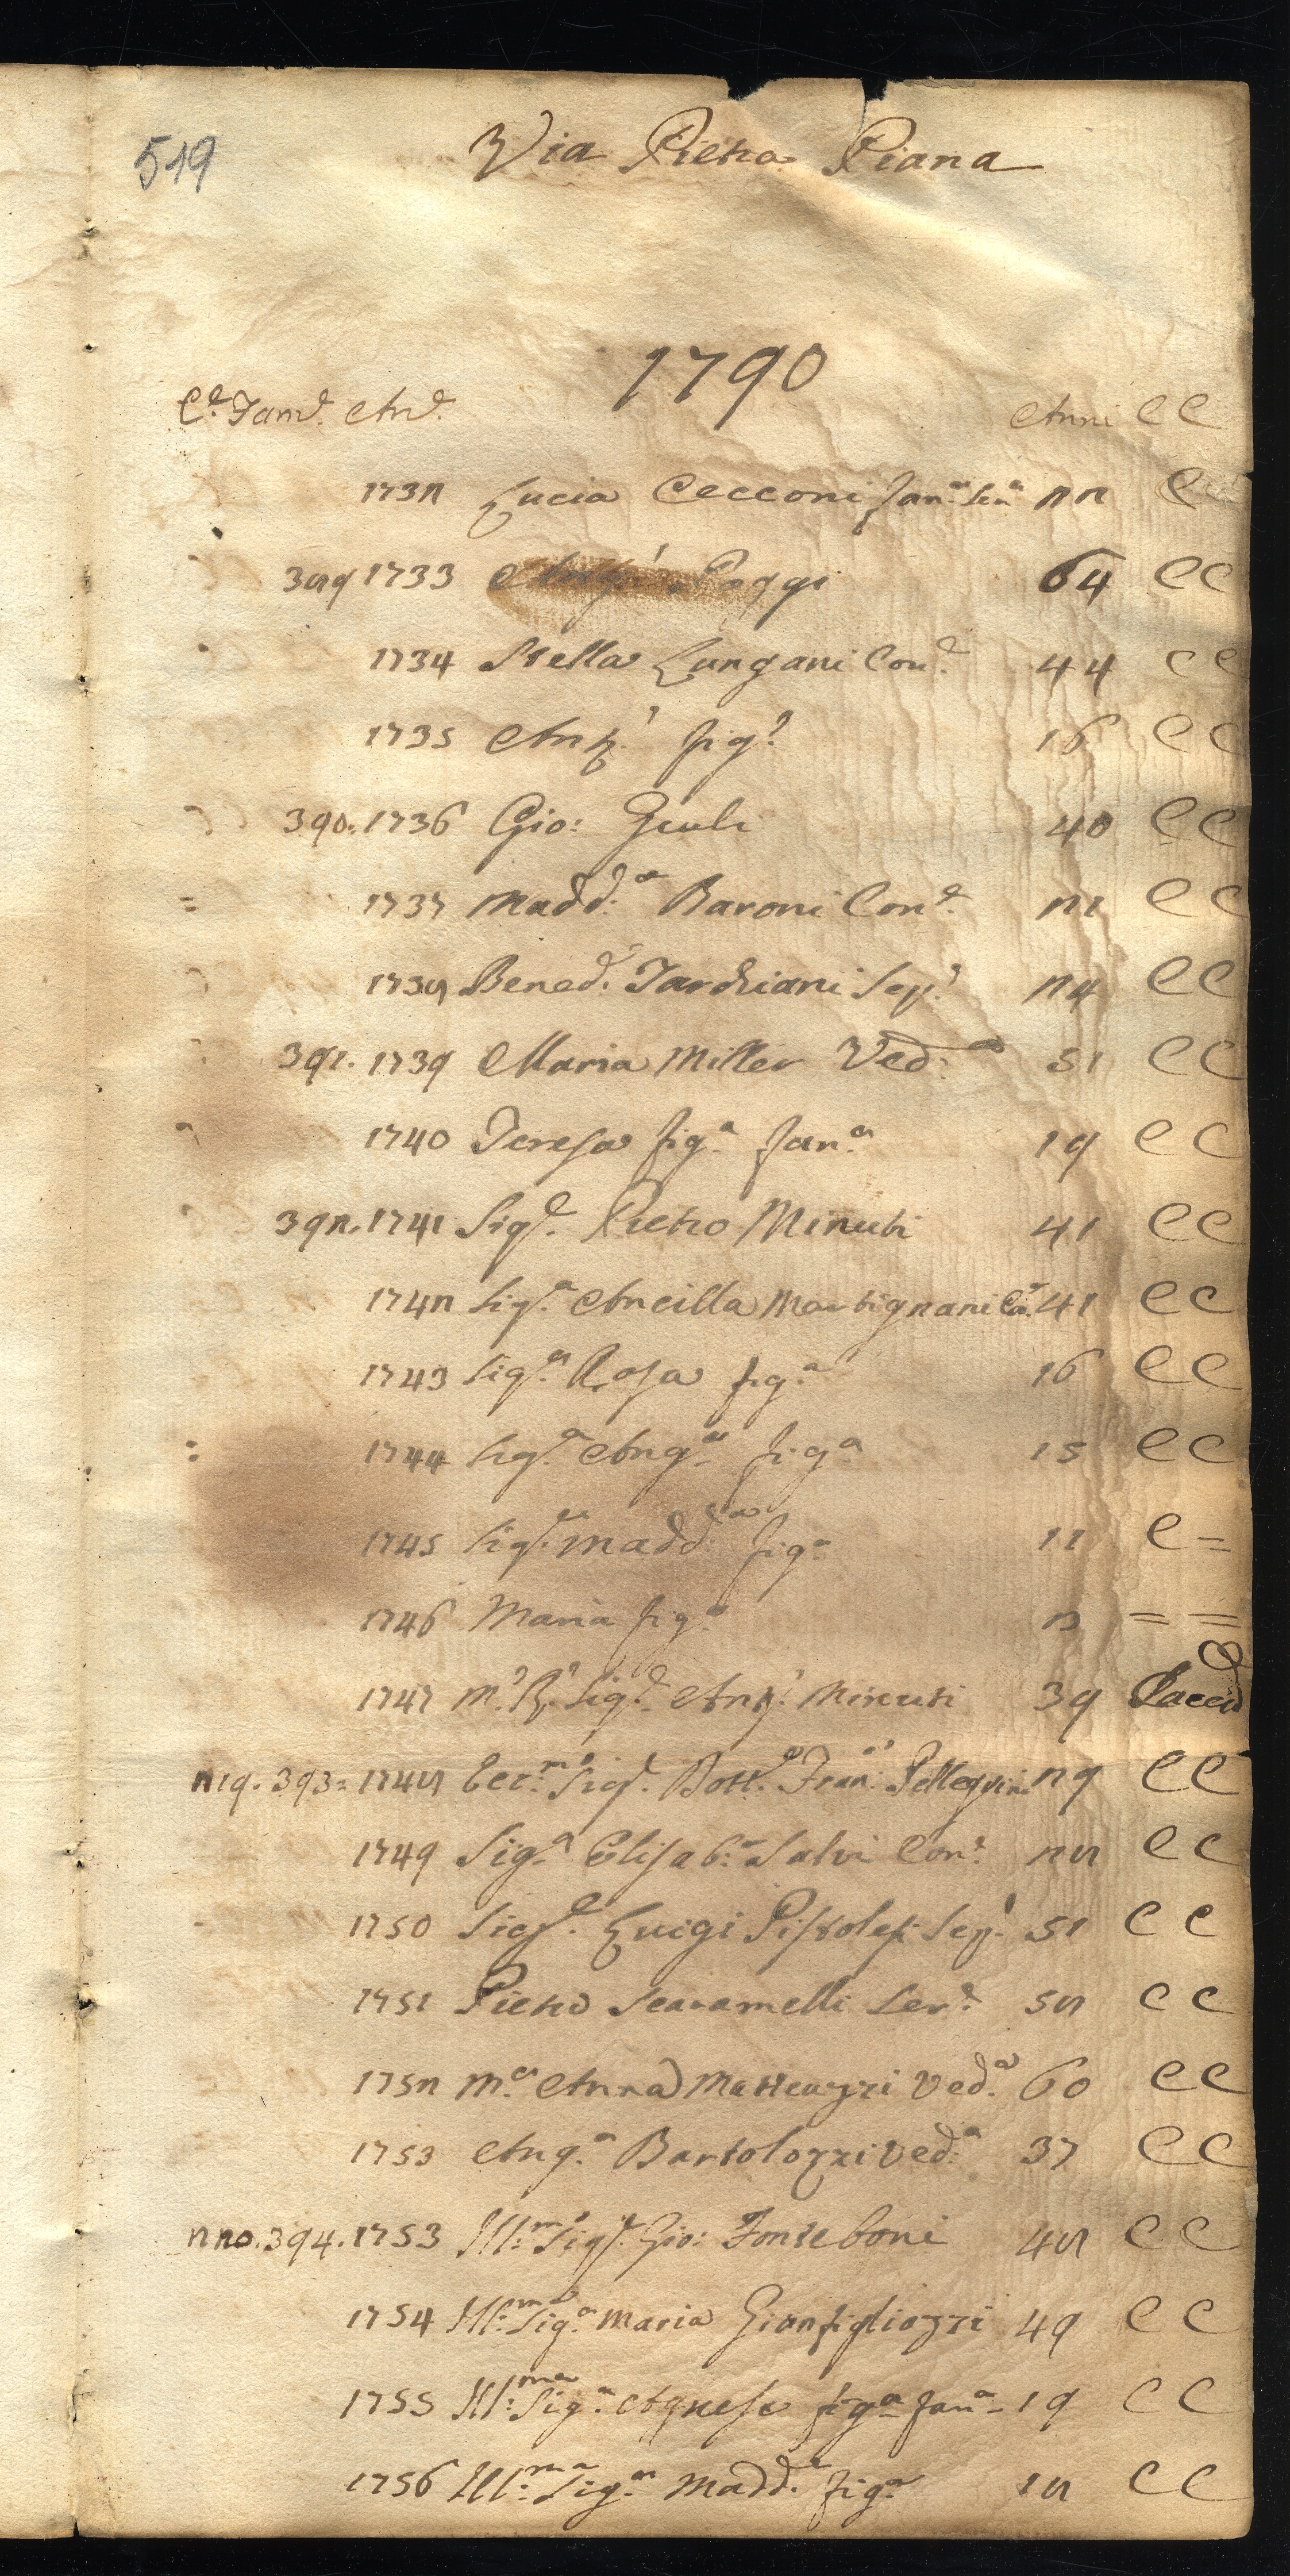 519
Via Pietra Piana
1790
C.e Fam.e An.e Anni C C
1732 Lucia Cecconi fan.a ser.a 22 C
389 1733 Ant.o Poggi 64 C C
1734 Stella Lungani Con.e 44 C C
1735 Ant.o fig.o 16 C C
390. 1736 Gio: Giuli 40 C C
1737 Madd.a Baroni Con.e 21 C C
1738 Bened.o Tarchiani Sep.o 24 C C
391. 1739 Maria Miller Ved.a 51 C C
1740 Teresa fig.a fan.a 19 C C
392. 1741 Sig.e Pietro Minuti 41 C C
1742 Sig.a Ancilla Martignani Co.e 41 C C
1743 Sig.a Rosa fig.a 16 C C
1744 Sig.a Ang.a fig.a 15 C C
1745 Sig.a Madd.a fig.a 11 C =
1746 Maria fig.a 2 = =
1747 M.o R.o Sig.e Ant.o Minuti 39 Sacerd
219. 393. 1748 Ecc.mo Sig.e Dott.e Fran.o Pellegrini 29 C C
1749 Sig.a Elisab.a Salvi Con.e 28 C C
1750 Sig.e Luigi Pistolesi Sep.o 51 C C
1751 Pietro Scaramelli Ser.e 58 C C
1752 M.a Anna Matteuzzi Ved.a 60 C C
1753 Ang.a Bartolozzi Ved.a 37 C C
220. 394. 1753 Ill.mo Sig.e Gio: Fonteboni 48 C C
1754 Ill.ma Sig.a Maria Gianfigliazzi 49 C C
1755 Ill.ma Sig.a Agnese fig.a fan.a 19 C C
1756 Ill.ma Sig.a Madd.a fig.a 18 C C